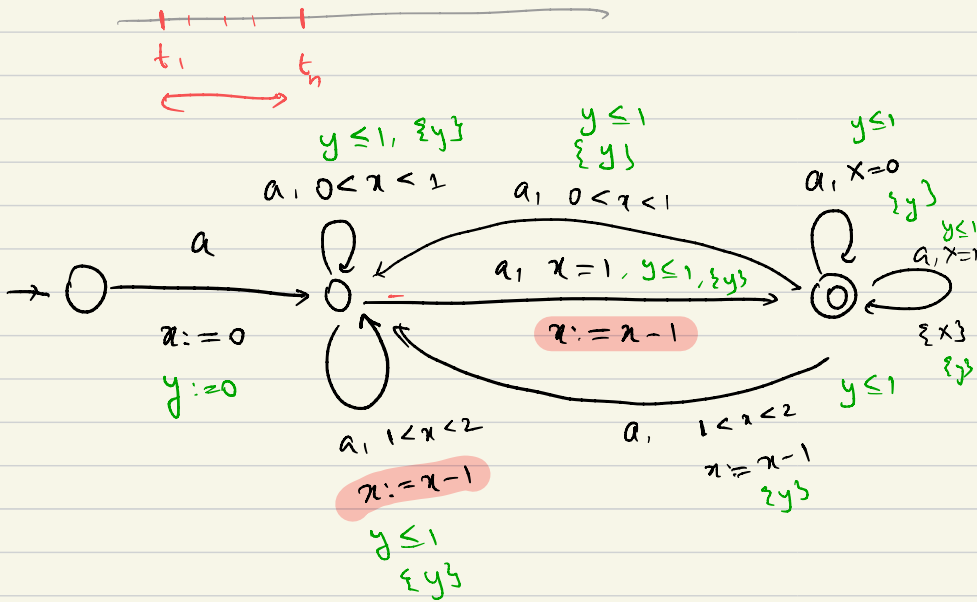 t₁
tₙ
y ≤ 1, {y}
a, 0 < x < 1
y ≤ 1
{y}
a, 0 < x < 1
y ≤ 1
a, x = 0
{y}
y ≤ 1
a
a, x = 1, y ≤ 1, {y}
x := 0
x := x - 1
{x}
{y}
y := 0
y ≤ 1
a, 1 < x < 2
x := x - 1
y ≤ 1
{y}
a, 1 < x < 2
x := x - 1
{y}